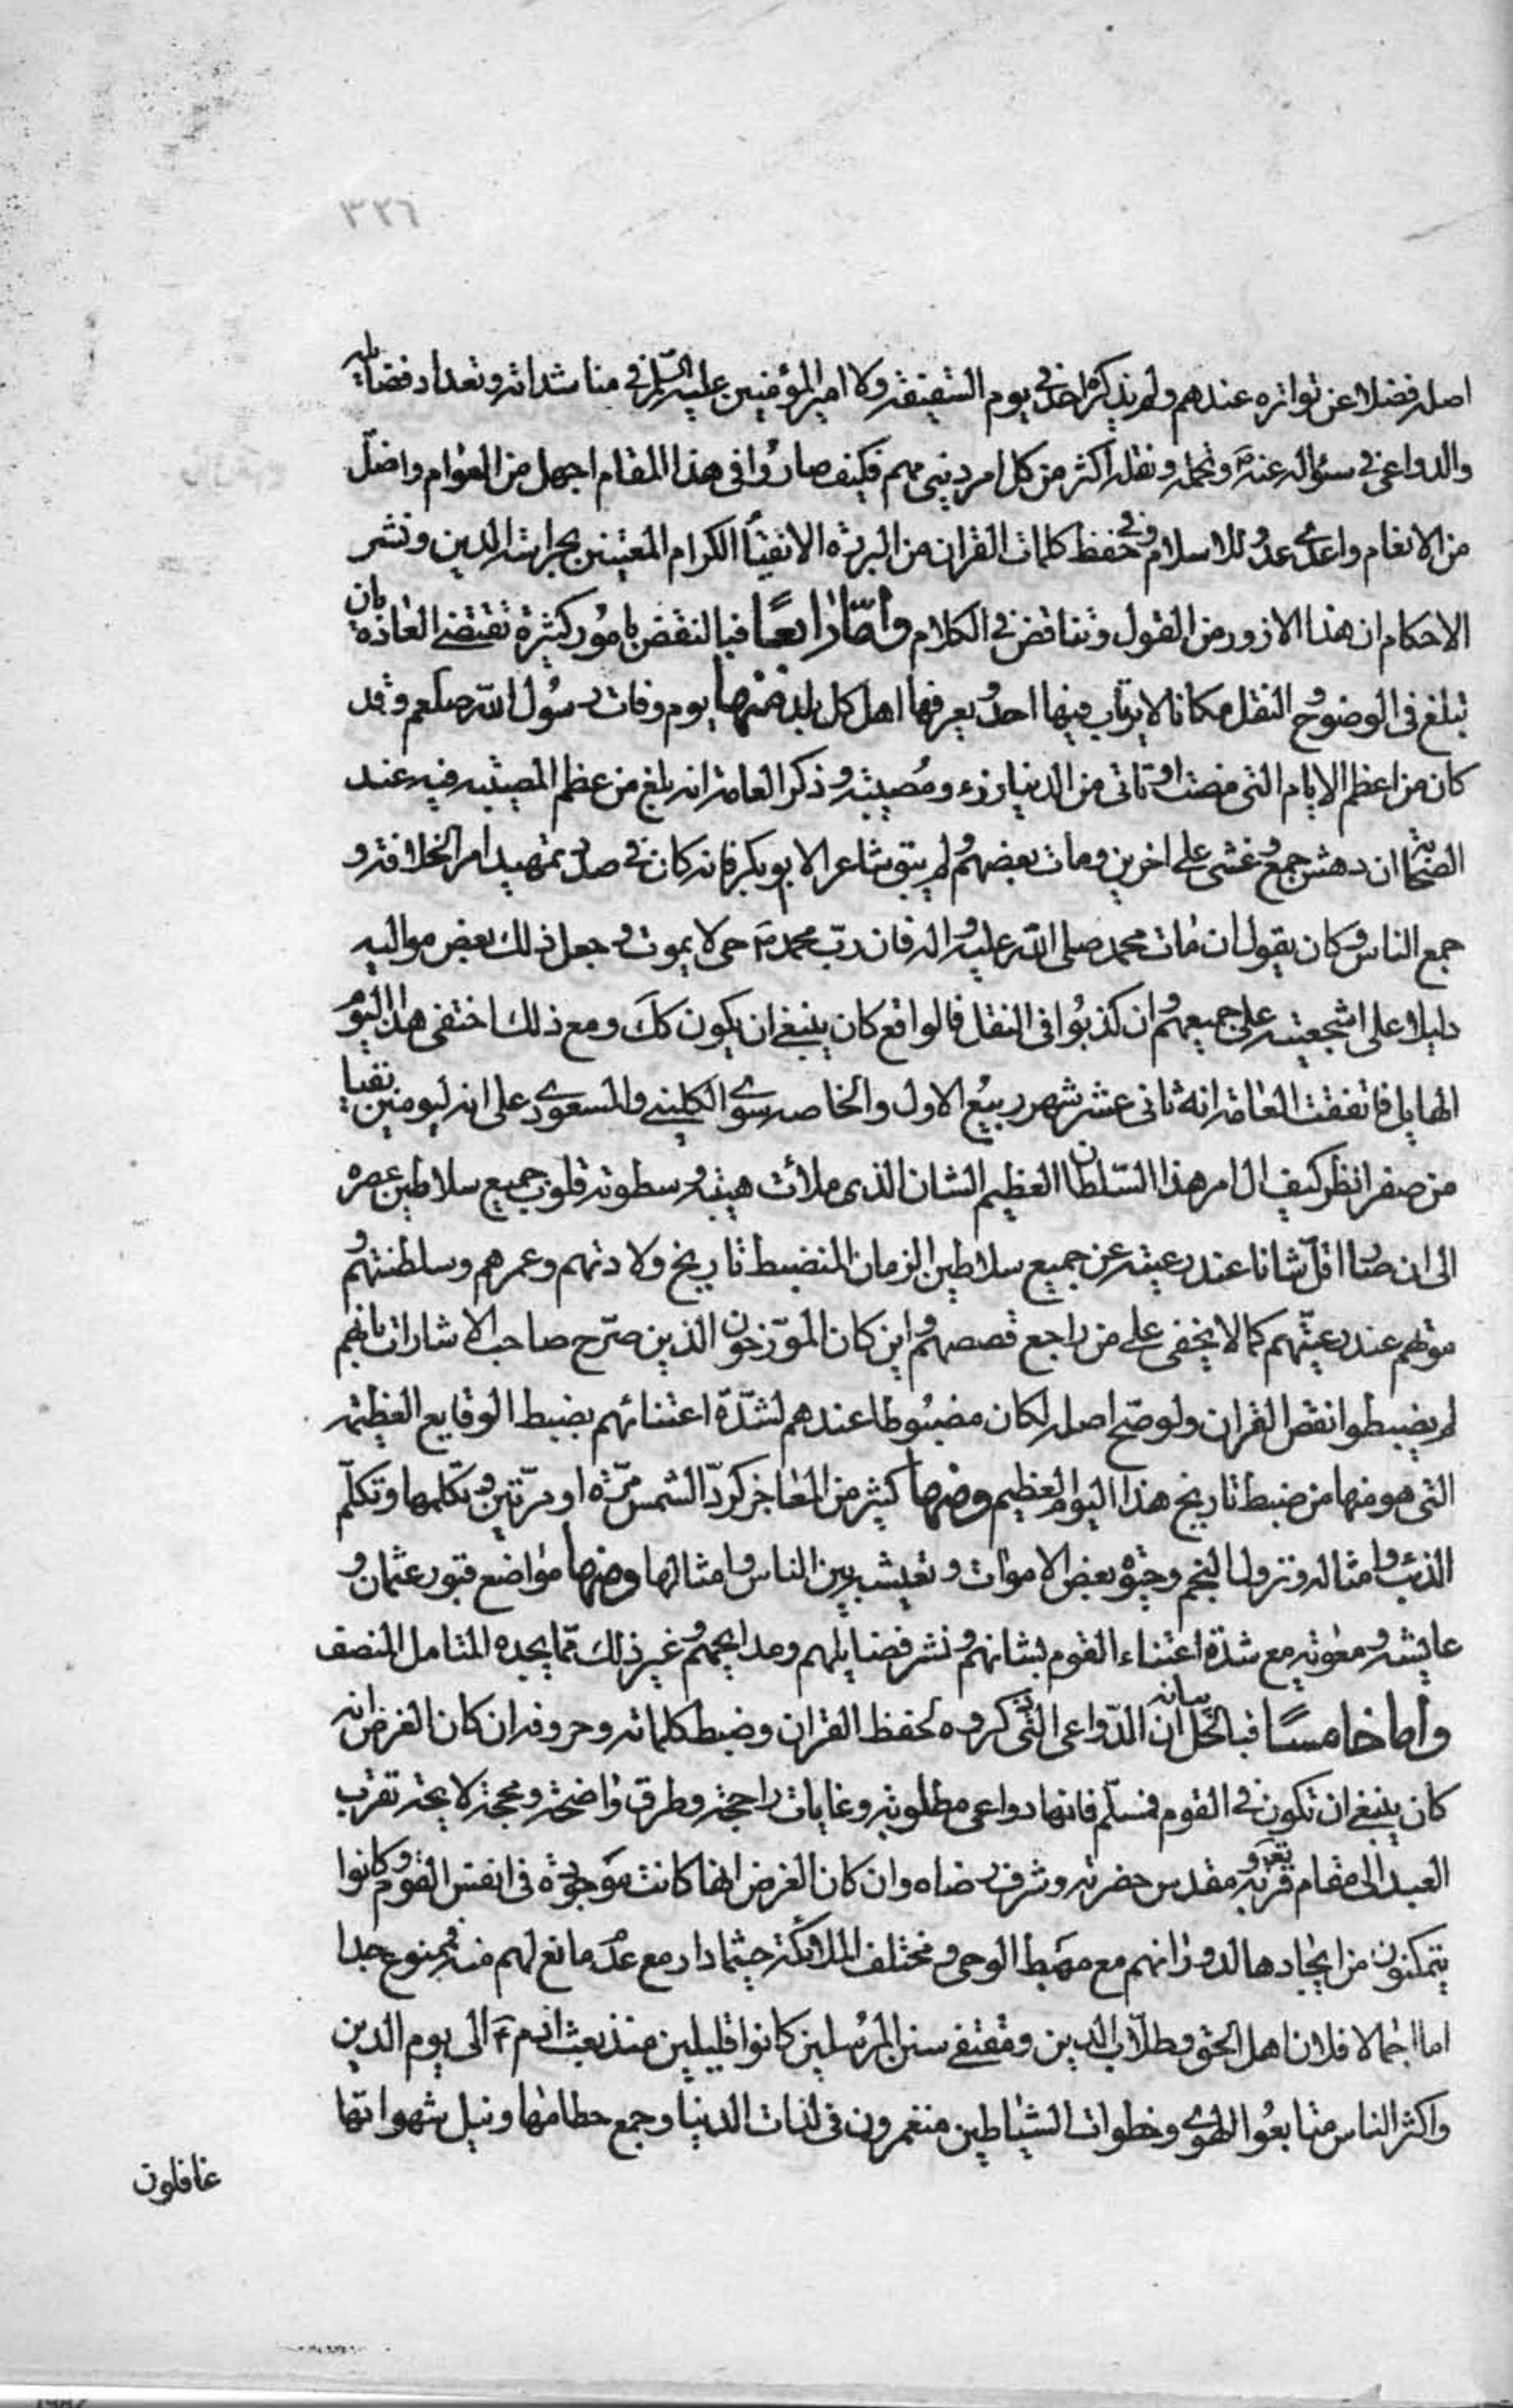 ٣٢٦
اصله فضلا عن تواتره عندهم ولم يذكره احد في يوم السقيفة ولا امير المؤمنين عليه السلم في مناشداته وتعداد فضايله
والدواعي في سئواله عنه ص وتحمله ونقله اكثر من كل امر ديني مهم فكيف صاروا في هذا المقام اجهل من العوام واضل
من الانعام واعدى عدو للاسلام وفي حفظ كلمات القران من البررة الاتقياء الكرام المعتنين بحراسة الدين ونشر
الاحكام ان هذا الا زور من القول وتناقض في الكلام واما رابعا فبالنقض بامور كثيرة تقتضي العادة بان
تبلغ في الوضوح والنقل مكانا لا يرتاب فيها احد ويعرفها اهل كل بلد فمنها يوم وفات رسول الله صلعم وقد
كان من اعظم الايام التي مضت او تاتي من الدنيا رزء ومصيبة وذكر العامة انه بلغ من عظم المصيبة فيه عند
الصحابة ان دهش جمع وغشى على اخرين ومات بعضهم ولم يبق شاعر الا ابو بكر فانه كان في صدد تمهيد امر الخلافة و
جمع الناس وكان يقول ان مات محمد صلى الله عليه واله فان رب محمد ص حي لا يموت وجعل ذلك بعض مواليه
دليلا على اشجعيته على جميعهم وان كذبوا في النقل فالواقع كان ينبغي ان يكون كك ومع ذلك اختفى هذا اليوم
الهايل فاتفقت العامة انه ثاني عشر شهر ربيع الاول والخاصة سوى الكليني والمسعودي على انه ليومين بقيا
من صفر انظر كيف ال امر هذا السلطان العظيم الشان الذي ملأت هيبته وسطوته قلوب جميع سلاطين عصره
الى ان صار اقل شانا عند رعيته عن جميع سلاطين الزمان المنضبط تاريخ ولادتهم وعمرهم وسلطنتهم و
موتهم عند رعيتهم كما لا يخفى على من راجع قصصهم واين كان المورخون الذين صرح صاحب الاشارات بانهم
لم يضبطوا نقص القران ولو صح اصله لكان مضبوطا عندهم لشدة اعتنائهم بضبط الوقايع العظيمة
التي هو منها من ضبط تاريخ هذا اليوم العظيم ومنها كثير من المعاجز كرد الشمس مرة او مرتين وتكلمها وتكلم
الذئب وامثاله ونزول النجم وحيوة بعض الاموات وتعيشه بين الناس وامثالها ومنها مواضع قبور عثمان و
عايشه ومعوية مع شدة اعتناء القوم بشانهم ونشر فضايلهم ومدايحهم وغير ذلك مما يجده المتامل المنصف
واما خامسا فبالحل بيانه ان الدواعي التي ذكروه لحفظ القران وضبط كلماته وحروفه ان كان الغرض انه
كان ينبغي ان تكون في القوم فمسلم فانها دواعي مطلوبة وغايات راجحة وطرق واضحة ومحجة لايحة تقرب
العبد الى مقام قربه تعالى ومقدس حضرته وشرف رضاه وان كان الغرض انها كانت موجودة في انفس القوم وكانوا
يتمكنون من ايجادها لدورانهم مع مهبط الوحي ومختلف الملائكة حيثما دار مع عدم مانع لهم منه فممنوع جدا
اما اجمالا فلان اهل الحق وطلاب الدين ومقتفي سنن المرسلين كانوا قليلين منذ بعث ادم ع الى يوم الدين
واكثر الناس متابعوا الهوى وخطوات الشياطين منغمرون في لذات الدنيا وجمع حطامها ونيل شهواتها
غافلون